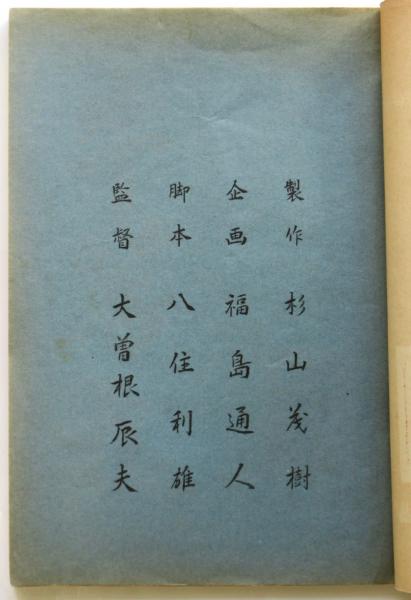 製作 杉山茂樹
企画 福島通人
脚本 八住利雄
監督 大曾根辰夫